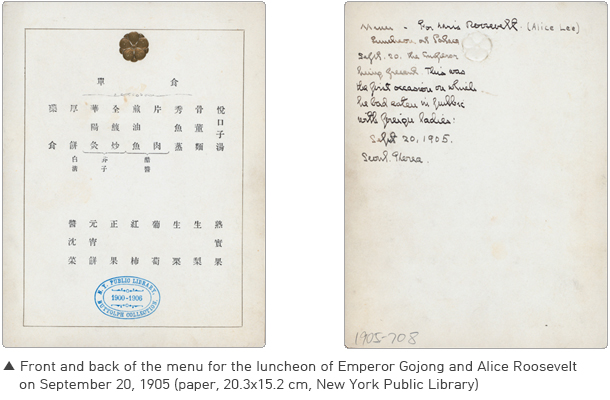 食單
悅口子湯
骨董麵
秀魚蒸
片肉
醋醬
煎油魚
全鰒炒
芥子
華陽炙
白
厚餠
食
熟實果
生梨
生栗
葡萄
紅柿
正果
元宵餠
醬沈菜
N. Y. PUBLIC LIBRARY
1900-1906
BUTTOLPH COLLECTION.
Menu - For Miss Roosevelt. (Alice Lee)
Luncheon at Palace
Sept. 20. the Emperor
being present. This was
the first occasion on which
he had eaten in public
with foreign ladies:
Sept 20, 1905.
Seoul. Korea.
1905-708
▲ Front and back of the menu for the luncheon of Emperor Gojong and Alice Roosevelt
on September 20, 1905 (paper, 20.3x15.2 cm, New York Public Library)